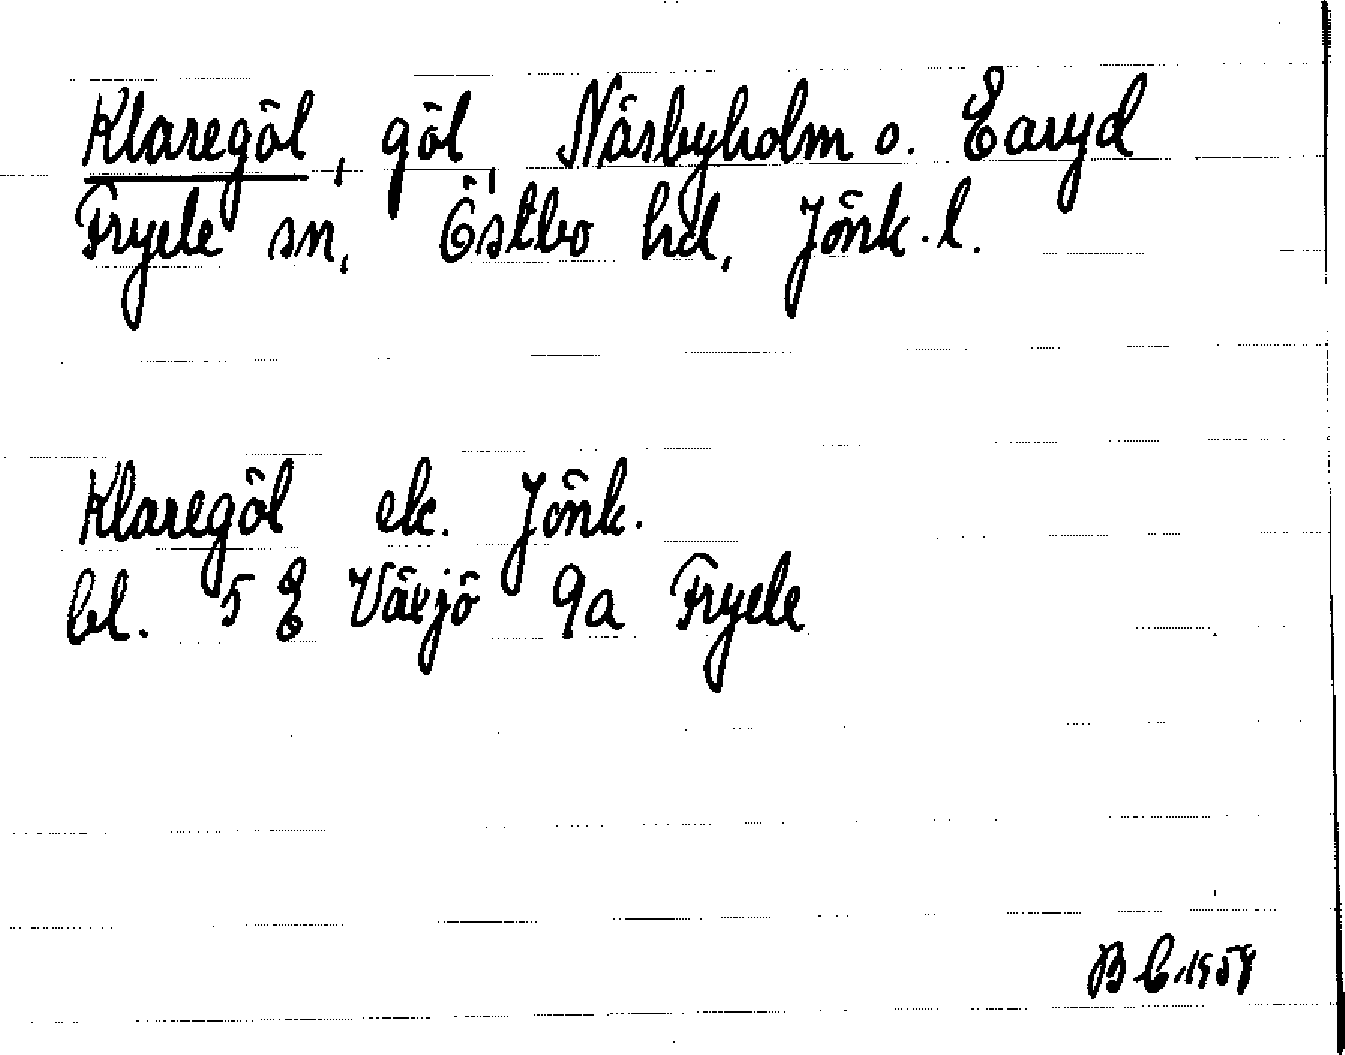 Klaregöl, göl, Näsbyholm o. Earyd
Fryele sn, Östbo hd, Jönk. l.
Klaregöl ek. Jönk.
bl. 5 E Växjö 9a Fryele